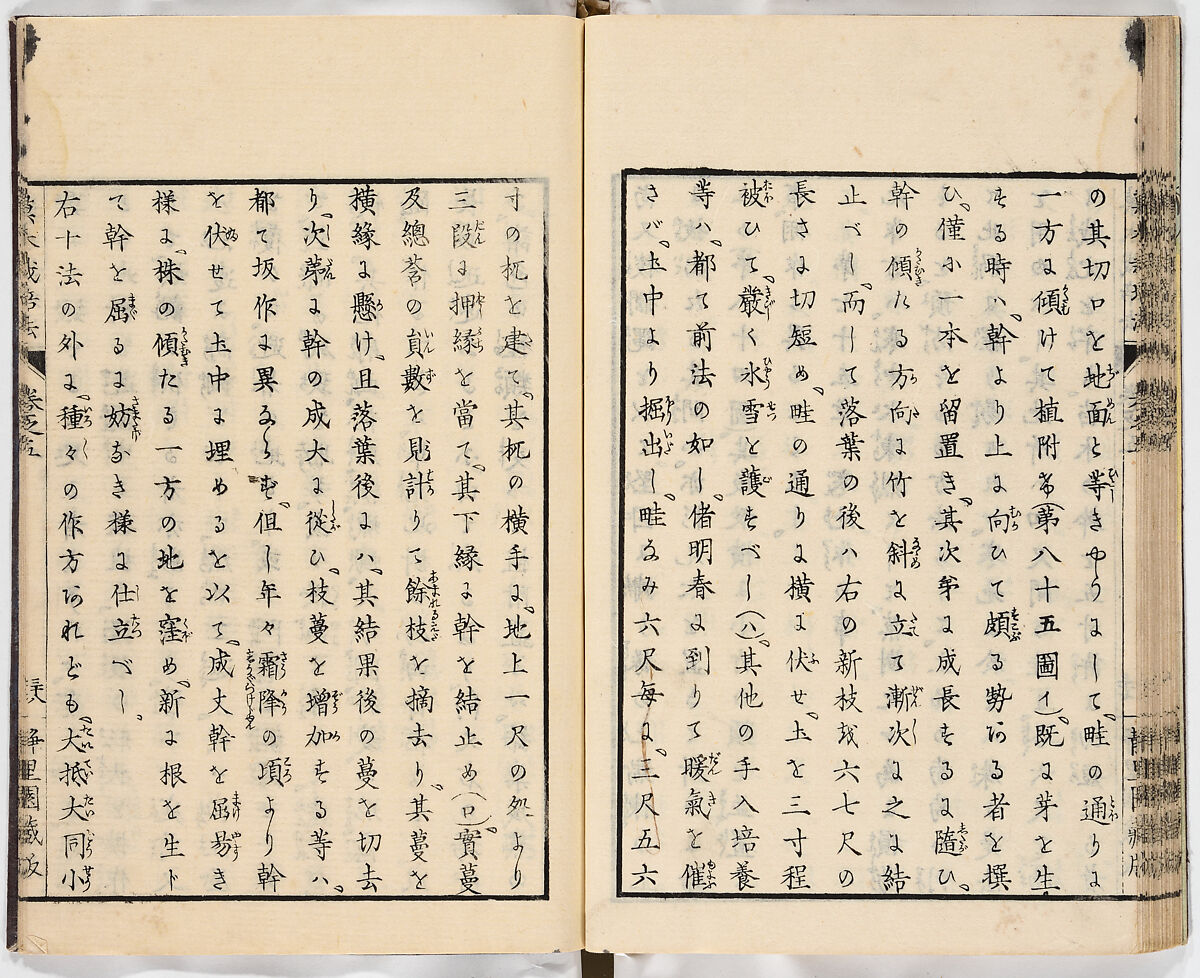 の其切口を地面と等きやうにして、畦の通りに
一方に傾けて植附、す(第八十五圖イ)既に芽を生
ずる時ハ、幹より上に向ひて頗る勢ある者を撰
ひ、僅に一本を留置き、其次第に成長するに隨ひ、
幹の傾たる方向に竹を斜に立て漸次に之に結
止べし、而して落葉の後ハ右の新枝或六七尺の
長さに切短め、畦の通りに横に伏せ、土を三寸程
被ひて、嚴く氷雪を護すべし(ハ)、其他の手入培養
等ハ、都て前法の如し、偖明春に到りて暖氣を催
さバ、土中より掘出し、畦なみ六尺毎に、三尺五六
寸の杙を建て、其杙の横手に、地上一尺の処より
三段に押縁を當て、其下縁に幹を結止め(ロ)、實蔓
及總莟の員數を見計りて餘枝を摘去り、其蔓を
横縁に懸け、且落葉後にハ、其結果後の蔓を切去
り、次第に幹の成大に從ひ、枝蔓を増加する等ハ、
都て坂作に異ならず、但し年々霜降の頃より幹
を伏せて土中に埋めるを以て、成丈幹を屈易き
様に、株の傾たる一方の地を窪め、新に根を生ド
て幹を屈るに妨なき様に仕立べし、
右十法の外に、種々の作方あれども、大抵大同小
卷之五
静里園藏板